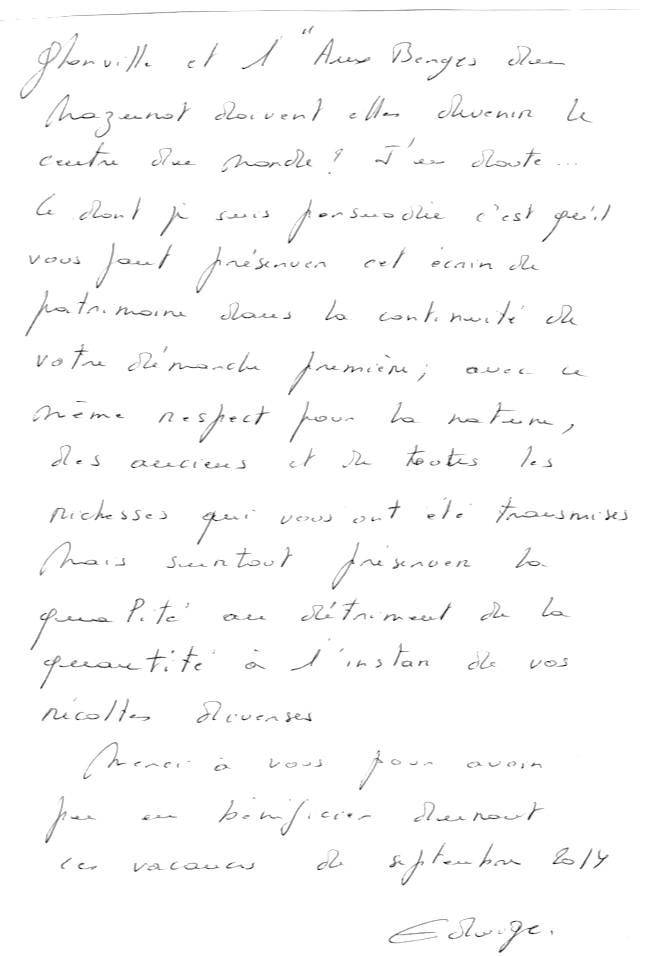 Glonville et l' "Aux Berges du
Mazurot doivent elles devenir le
centre du monde ? J'en doute...
Ce dont je suis persuadée c'est qu'il
vous faut préserver cet écrin de
patrimoine dans la continuité de
votre démarche première ; avec ce
même respect pour la nature,
des anciens et de toutes les
richesses qui vous ont été transmises
Mais surtout préserver la
qualité au détriment de la
quantité à l'instan de vos
récoltes diverses
Merci à vous pour avoir
pu en bénéficier durant
ces vacances de septembre 2014
Edwige.